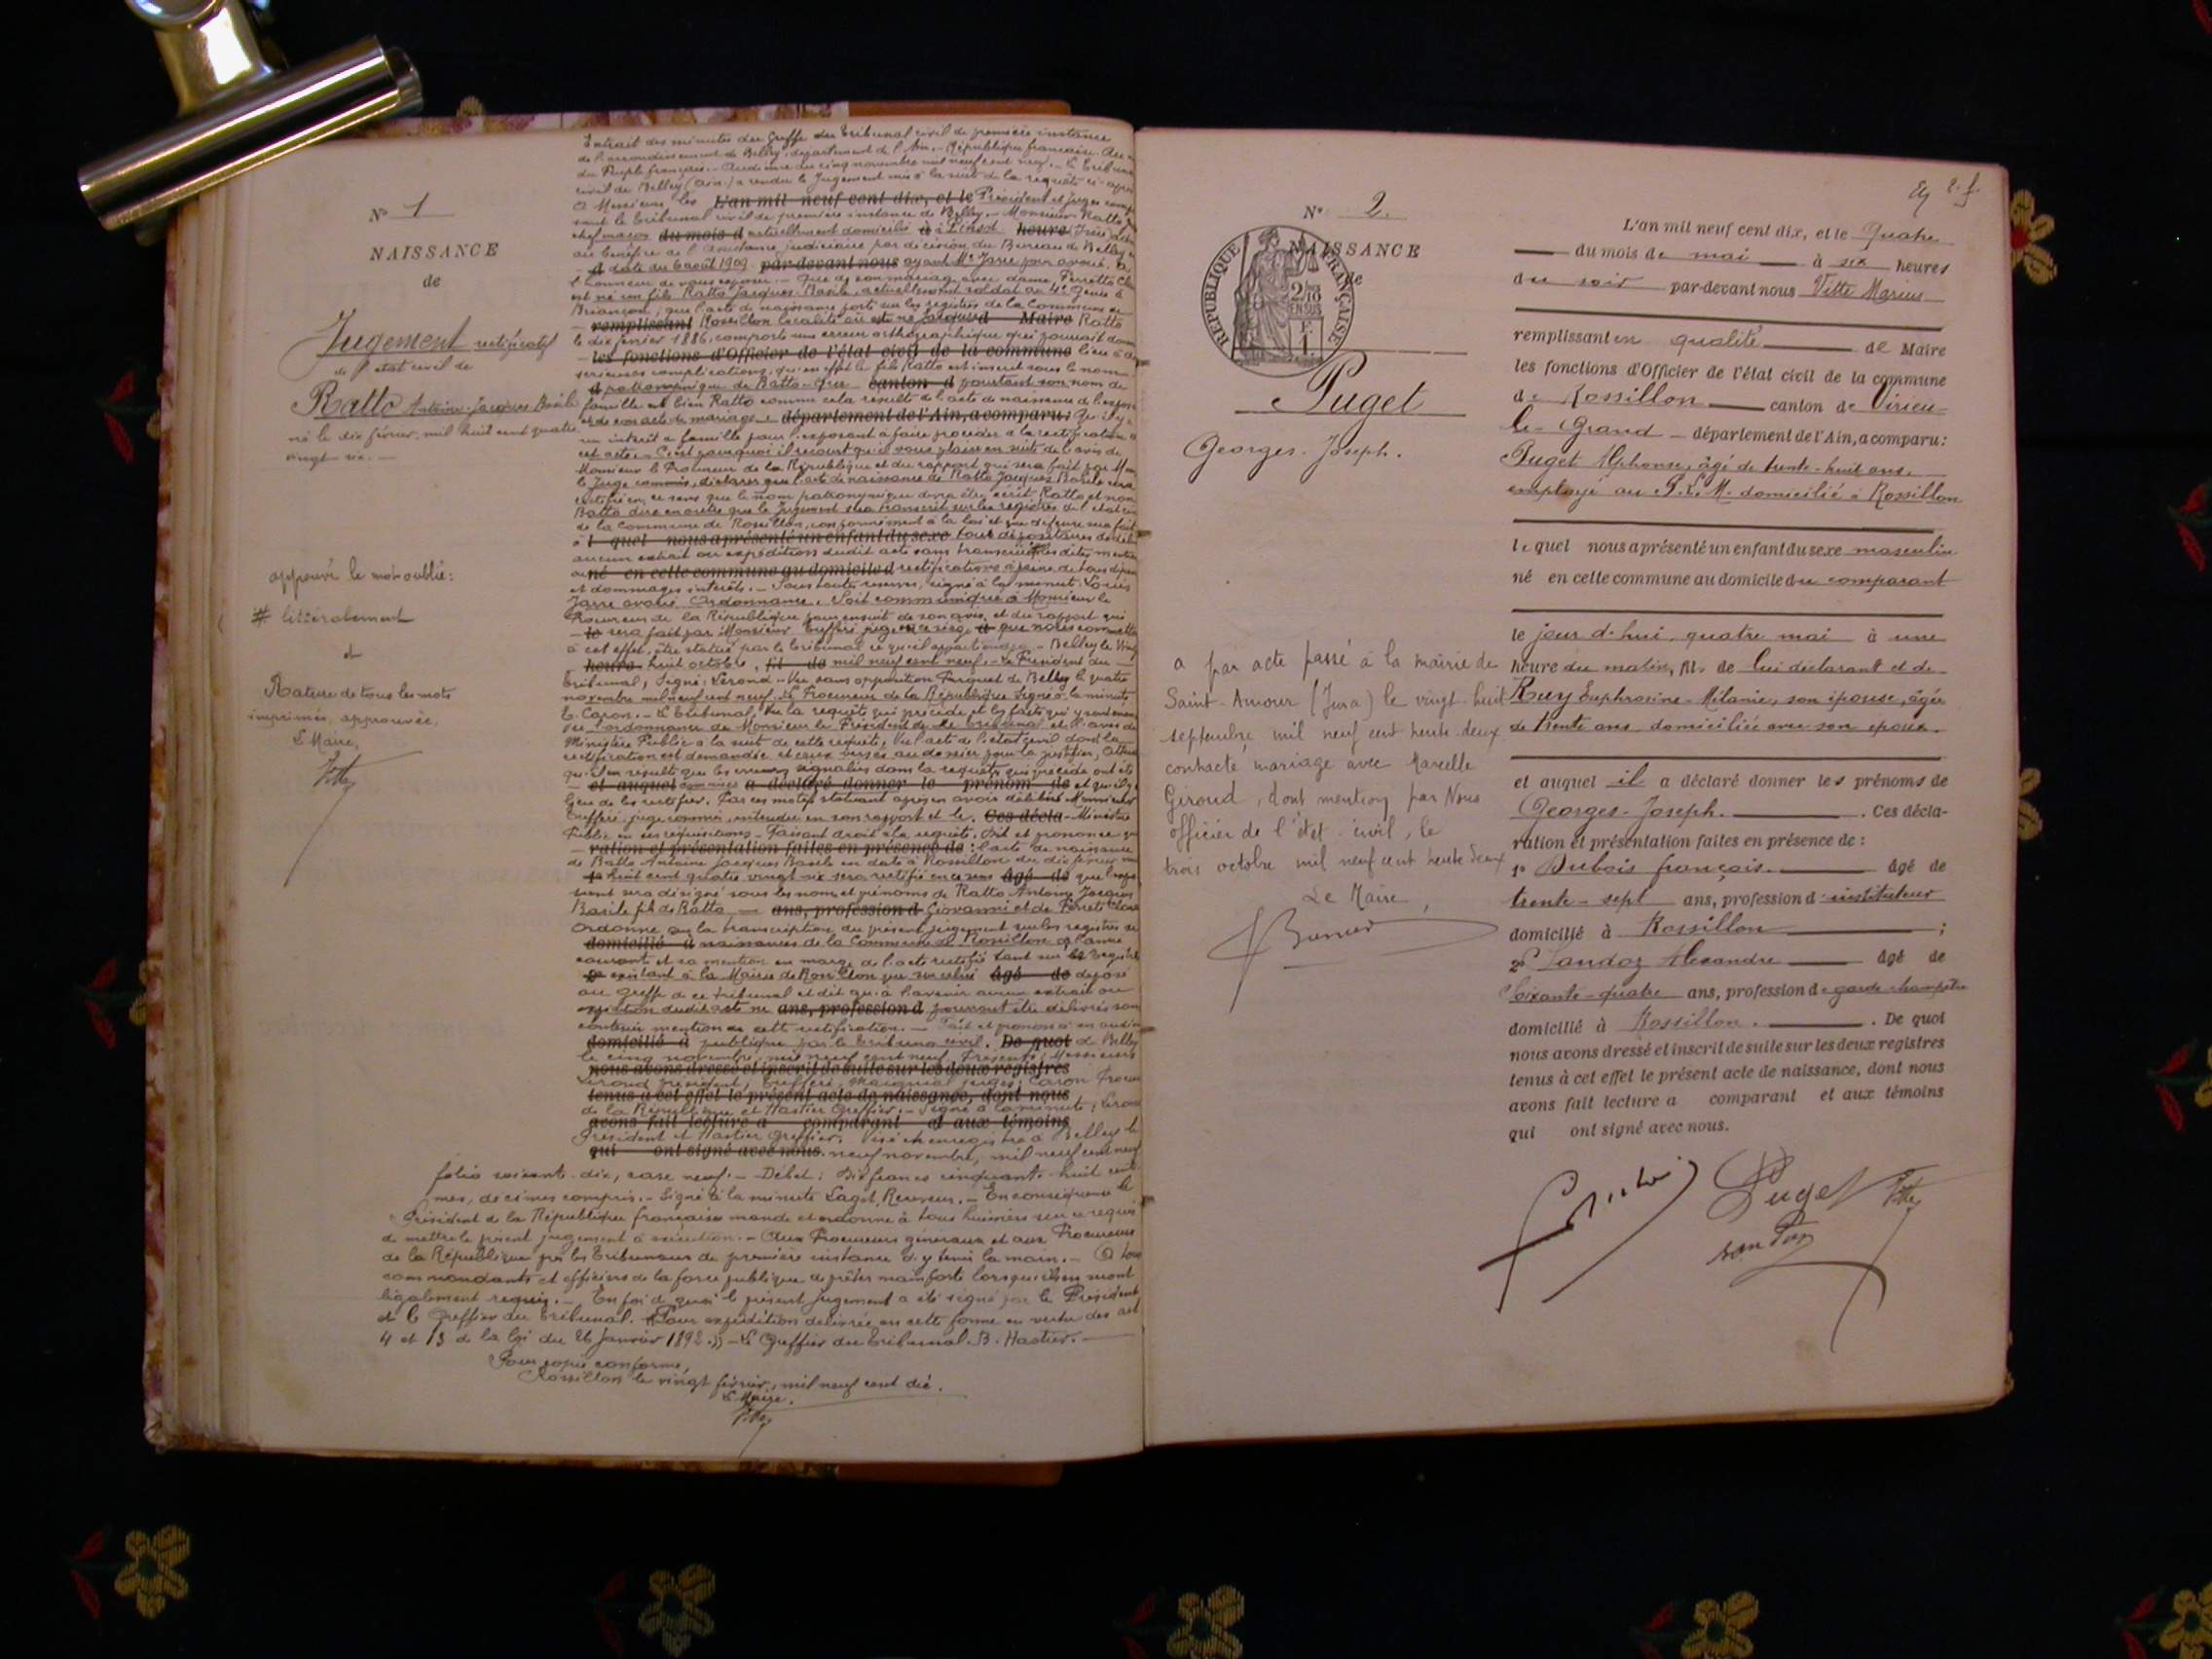 N° 1
NAISSANCE
de
Jugement rectificatif
de l'état civil de
Ratto Antoine-Jacques Basile
né le dix février mil huit cent quatre
vingt six. —
approuvé le mot oublié:
# littéralement
et
Rature de tous les mots
imprimés, approuvée,
Le Maire,
Extrait des minutes du Greffe du Tribunal civil de première instance
de l'arrondissement de Belley, département de l'Ain. - République française. Au
du Peuple français. - Audience du cinq novembre mil neuf cent neuf. - Le Tribunal
civil de Belley (Ain) a rendu le Jugement mis à la suite de la requête ci-après
A Messieurs les L'an mil neuf cent dix, et le Président et Juges
sant le Tribunal civil de première instance de Belley. - Monsieur Ratto
chef maçon du mois d actuellement domicilié à à heure
au bénéfice de l'assistance judiciaire par décision du Bureau de Belley
date du 6 août 1909 par-devant nous ayant Me Jarre pour avoué. A
l'honneur de vous exposer. - Que de son mariage avec dame Perretto
est né un fils Ratto Jacques-Basile, actuellement soldat au 4e Génie à
Briançon; que l'acte de naissance porté sur les registres de la Commune de
remplissant Rossillon localité où est né Jacques d Maire Ratto
le dix février 1886, comporte une erreur orthographique qui pourrait
les fonctions d'Officier de l'état civil de la commune lieu à de
sérieuses complications, qu'en effet le fils Ratto est inscrit sous le nom
patronymique de Batto. Que canton d pourtant son nom de
famille est bien Ratto comme cela résulte de l'acte de naissance de l'expo
et de son acte de mariage. département de l'Ain, a comparu: Qu'il y a
un intérêt à famille pour l'exposant à faire procéder à la rectification
cet acte. - C'est pourquoi il recourt qu'il vous plaise en suite de l'avis de
Monsieur le Procureur de la République et du rapport qui sera fait par
le Juge commis, déclarer que l'acte de naissance de Ratto Jacques Basile sera
rectifié en ce sens que le nom patronymique devra être écrit Ratto et non
Batto dire en outre que le Jugement sera transcrit sur les registres de l'état civil
de la Commune de Rossillon, conformément à la loi et que défense sera fait
à l quel nous a présenté un enfant du sexe tous dépositaires de
aucun extrait ou expédition dudit acte sans transcrire les dites
né en cette commune au domicile d rectifications à peine de tous dépens
et dommages intérêts. - Sous toutes réserves, signé à la minute Louis
Jarre avoué. Ordonnance. Soit communiqué à Monsieur le
Procureur de la République pour ensuite de son avis, et du rapport qui
le sera fait par Monsieur Tufferi juge à que nous commettons
à cet effet, être statué par le tribunal ce qu'il appartiendra. - Belley le
heure huit octobre, fil de mil neuf cent neuf. - Le Président du
Tribunal, Signé: Lerond. - Vu sans opposition Parquet de Belley le quatre
novembre mil neuf cent neuf. Le Procureur de la République Signé à la minute
E. Caron. - Le Tribunal, Vu la requête qui précède et les faits qui y sont
Vu l'ordonnance de Monsieur le Président de ce tribunal et l'avis du
Ministère Public à la suite de cette requête, Vu l'acte de l'état civil dont la
rectification est demandée et ceux versés au dossier pour la justifier,
qu'il en résulte que les erreurs signalées dans la requête qui précède ont été
et auquel a déclaré donner le prénom de et qu'il y a
lieu de les rectifier. Par ces motifs statuant après en avoir délibéré Monsieur
Tufferi, juge commis, entendu en son rapport et le. Ces décla- Ministère
Public en ses réquisitions. - Faisant droit à la requête. Dit et prononce
ration et présentation faites en présence de: l'acte de naissance
de Batto Antoine Jacques Basile en date à Rossillon du dix février mil
1° huit cent quatre vingt six sera rectifié en ce sens âgé de que l'expo
sant sera désigné sous les noms et prénoms de Ratto Antoine Jacques
Basile fils de Ratto ans, profession d Giovanni et de Perretto
Ordonne que la transcription du présent jugement sur les registres de
domicilié à naissances de la Commune de Rossillon de l'année
courante et sa mention en marge de l'acte rectifié tant sur les registres
2° existant à la Mairie de Rossillon que sur celui âgé de déposé
au greffe de ce tribunal et dit qu'à l'avenir aucun extrait ou
expédition dudit acte ne ans, profession d pourront être délivrés sans
contenir mention de cette rectification. - Fait et prononcé en audience
domicilié à publique par le Tribunal civil. De quoi de Belley
le cinq novembre, mil neuf cent neuf. Présents: Messieurs
nous avons dressé et inscrit de suite sur les deux registres
Lerond président, Tufferi, juges; Caron Procureur
tenus à cet effet le présent acte de naissance, dont nous
de la République et Hastier Greffier. - Signé à la minute; Lerond
avons fait lecture a comparant et aux témoins
Président et Hastier greffier. Visé et enregistré à Belley le
qui ont signé avec nous. neuf novembre, mil neuf cent neuf
folio soixante-dix, case neuf. - Débet: Dix francs cinquante-huit centi
mes, décimes compris. - Signé à la minute Laget, Receveur. - En conséquence le
Président de la République française mande et ordonne à tous huissiers sur ce requis
de mettre le présent jugement à exécution. - Aux Procureurs généraux et aux Procureurs
de la République près les Tribunaux de première instance d'y tenir la main. - A tous
commandants et officiers de la force publique de prêter main forte lorsqu'ils en seront
légalement requis. - En foi de quoi le présent Jugement a été signé par le Président
et le Greffier du Tribunal. Pour expédition délivrée en cette forme en vertu des art
4 et 13 de la loi du 26 janvier 1892.)) - Le Greffier du Tribunal. B. Hastier. -
Pour copie conforme,
Rossillon le vingt février, mil neuf cent dix.
Le Maire.
N° 2.
NAISSANCE
de
RÉPUBLIQUE FRANÇAISE
2/10
EN SUS
1 F.
Puget
Georges-Joseph.
a par acte passé à la mairie de
Saint-Amour (Jura) le vingt-huit
septembre mil neuf cent trente-deux
contracté mariage avec Marcelle
Giroud, dont mention par Nous
officier de l'état-civil, le
trois octobre mil neuf cent trente deux
Le Maire,
L'an mil neuf cent dix, et le Quatre
du mois de mai à six heures
du soir par-devant nous Vitte Marius
remplissant en qualité de Maire
les fonctions d'Officier de l'état civil de la commune
de Rossillon canton de Virieu-
le-Grand département de l'Ain, a comparu:
Puget Alphonse, âgé de trente-huit ans.
employé au P.L.M. domicilié à Rossillon
lequel nous a présenté un enfant du sexe masculin
né en cette commune au domicile du comparant
le jour d'hui, quatre mai à une
heure du matin, fil. de lui déclarant et de
Ruy Euphrosine-Mélanie, son épouse, âgée
de trente ans domiciliée avec son époux.
et auquel il a déclaré donner les prénoms de
Georges-Joseph. . Ces décla-
ration et présentation faites en présence de:
1° Dubois françois. âgé de
trente-sept ans, profession d'instituteur
domicilié à Rossillon ;
2° Landoz Alexandre âgé de
soixante-quatre ans, profession de garde-champêtre
domicilié à Rossillon. . De quoi
nous avons dressé et inscrit de suite sur les deux registres
tenus à cet effet le présent acte de naissance, dont nous
avons fait lecture a comparant et aux témoins
qui ont signé avec nous.
Puget